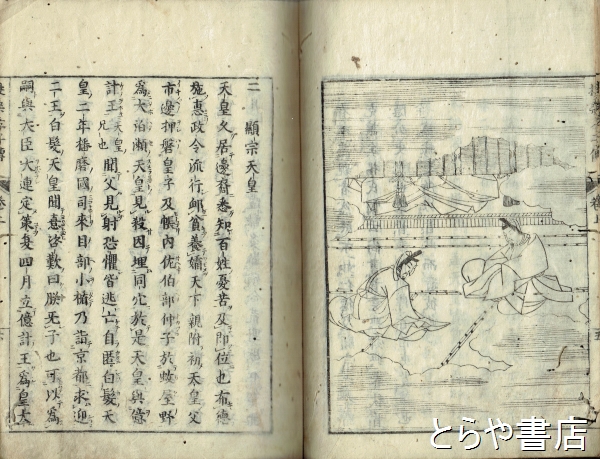 二 顯宗天皇
天皇久居邊裔悉知百姓憂苦及即位也布德
施惠政令流行邮貧養孀天下親附初天皇父
市邊押磐皇子及帳內佐伯部仲子於蚊屋野
為大泊瀨天皇見殺因埋同穴於是天皇與億
計王天皇兄也聞父見射恐懼皆逃亡自匿白髮天
皇二年播磨國司來目部小楯乃詣京都求迎
二王白髮天皇聞憙咨歎曰朕无子也可以為
嗣與大臣大連定策夏四月立億計王為皇太
とらや書店